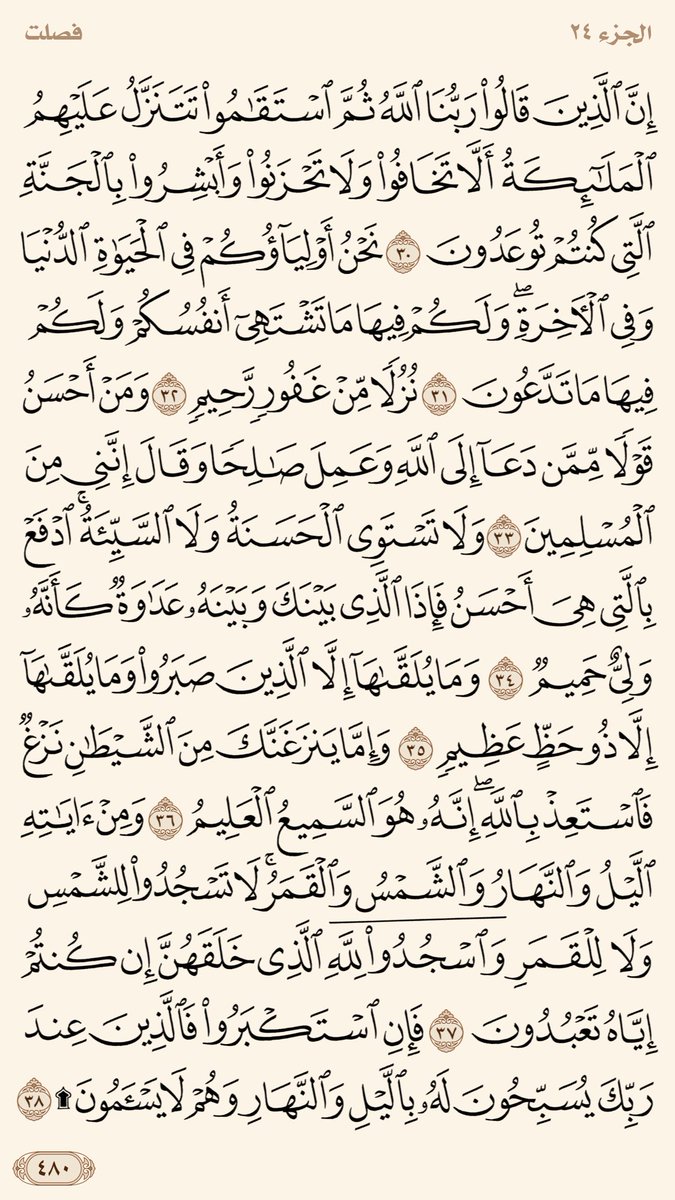 الجزء ٢٤
فصلت
إِنَّ ٱلَّذِينَ قَالُواْ رَبُّنَا ٱللَّهُ ثُمَّ ٱسۡتَقَٰمُواْ تَتَنَزَّلُ عَلَيۡهِمُ
ٱلۡمَلَٰٓئِكَةُ أَلَّا تَخَافُواْ وَلَا تَحۡزَنُواْ وَأَبۡشِرُواْ بِٱلۡجَنَّةِ
ٱلَّتِي كُنتُمۡ تُوعَدُونَ ٣٠ نَحۡنُ أَوۡلِيَآؤُكُمۡ فِي ٱلۡحَيَوٰةِ ٱلدُّنۡيَا
وَفِي ٱلۡأٓخِرَةِۖ وَلَكُمۡ فِيهَا مَا تَشۡتَهِيٓ أَنفُسُكُمۡ وَلَكُمۡ
فِيهَا مَا تَدَّعُونَ ٣١ نُزُلٗا مِّنۡ غَفُورٖ رَّحِيمٖ ٣٢ وَمَنۡ أَحۡسَنُ
قَوۡلٗا مِّمَّن دَعَآ إِلَى ٱللَّهِ وَعَمِلَ صَٰلِحٗا وَقَالَ إِنَّنِي مِنَ
ٱلۡمُسۡلِمِينَ ٣٣ وَلَا تَسۡتَوِي ٱلۡحَسَنَةُ وَلَا ٱلسَّيِّئَةُۚ ٱدۡفَعۡ
بِٱلَّتِي هِيَ أَحۡسَنُ فَإِذَا ٱلَّذِي بَيۡنَكَ وَبَيۡنَهُۥ عَدَٰوَةٞ كَأَنَّهُۥ
وَلِيٌّ حَمِيمٞ ٣٤ وَمَا يُلَقَّىٰهَآ إِلَّا ٱلَّذِينَ صَبَرُواْ وَمَا يُلَقَّىٰهَآ
إِلَّا ذُو حَظٍّ عَظِيمٖ ٣٥ وَإِمَّا يَنزَغَنَّكَ مِنَ ٱلشَّيۡطَٰنِ نَزۡغٞ
فَٱسۡتَعِذۡ بِٱللَّهِۖ إِنَّهُۥ هُوَ ٱلسَّمِيعُ ٱلۡعَلِيمُ ٣٦ وَمِنۡ ءَايَٰتِهِ
ٱلَّيۡلُ وَٱلنَّهَارُ وَٱلشَّمۡسُ وَٱلۡقَمَرُۚ لَا تَسۡجُدُواْ لِلشَّمۡسِ
وَلَا لِلۡقَمَرِ وَٱسۡجُدُواْۤ لِلَّهِۤ ٱلَّذِي خَلَقَهُنَّ إِن كُنتُمۡ
إِيَّاهُ تَعۡبُدُونَ ٣٧ فَإِنِ ٱسۡتَكۡبَرُواْ فَٱلَّذِينَ عِندَ
رَبِّكَ يُسَبِّحُونَ لَهُۥ بِٱلَّيۡلِ وَٱلنَّهَارِ وَهُمۡ لَا يَسۡـَٔمُونَ۩ ٣٨
٤٨٠